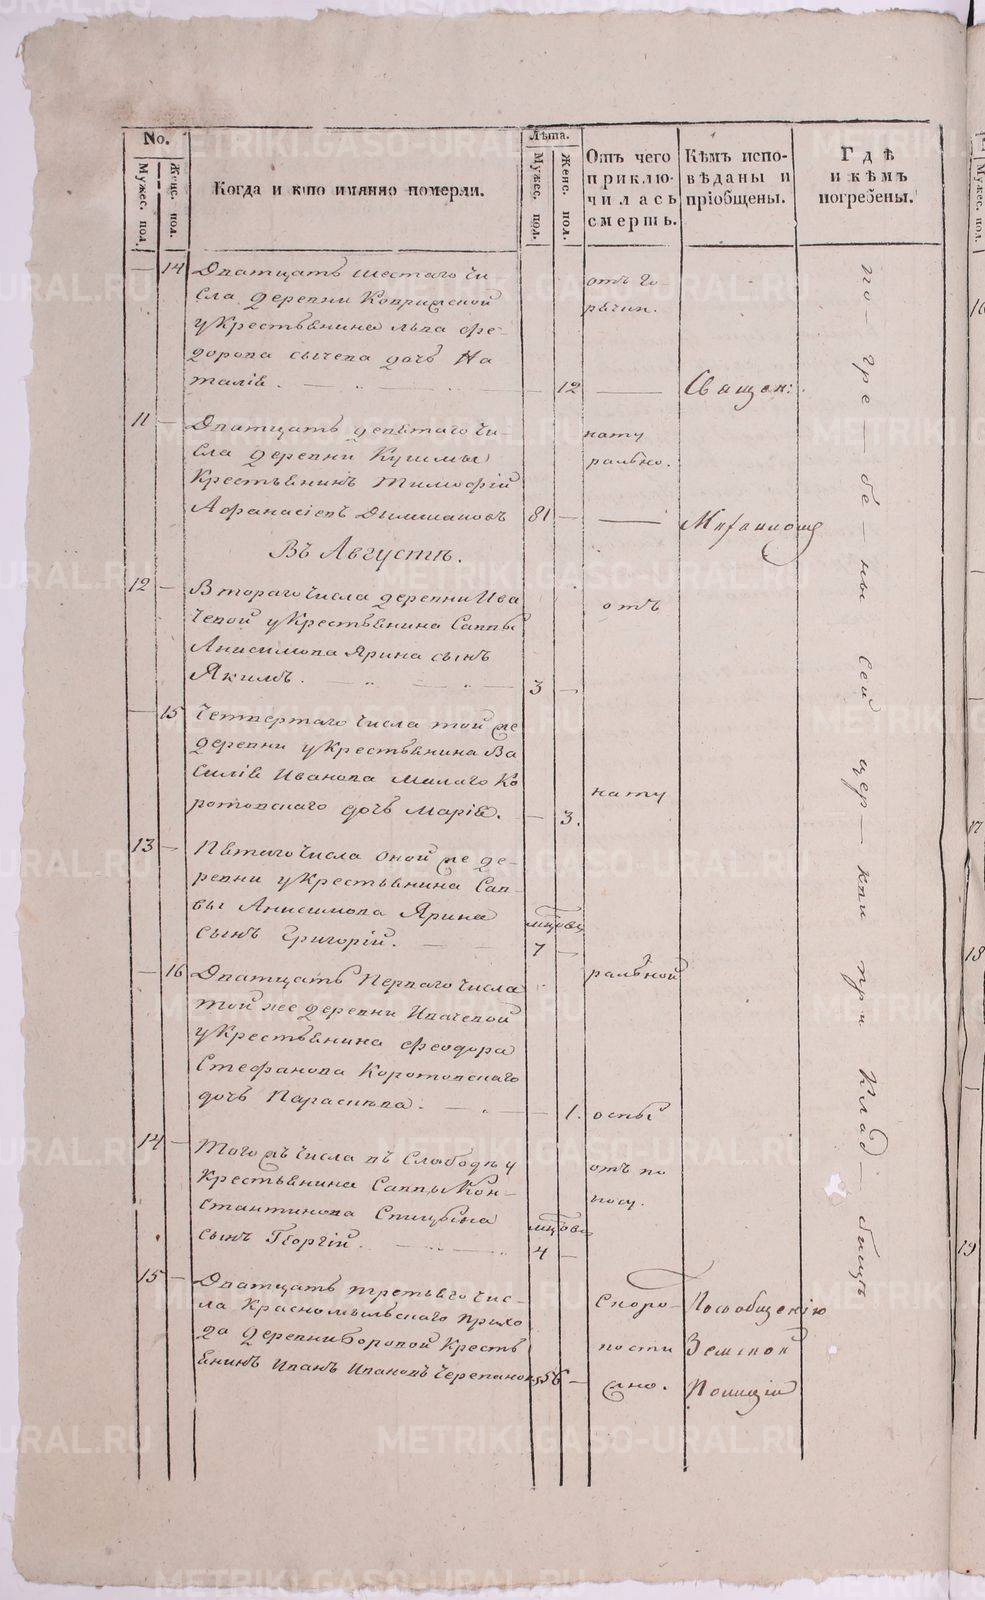 No.
Мужес. пол
Женс. пол.
Когда и кто имянно померли.
Лѣта.
Мужес. пол.
Женс. пол.
Отъ чего
приклю-
чилась
смерть.
Кѣмъ испо-
вѣданы и
пріобщены.
Гдѣ
и кѣмъ
погребены.
— 14 Дватцать шестаго чи-
сла деревни
у Крестьянина Льва Фе-
дорова Сычева дочь На
талія. — 12
отъ го
рячки.
— Священ:
11 — Дватцать девятаго чи-
сла деревни
Крестьянинъ Тимофей
Афанасіевъ 81 —
нату
рально.
—
Въ Августѣ.
12 — Втораго числа деревни Ива
чевой у Крестьянина Саввы
Анисимова Ярина сынъ
Якимъ. — 3 —
отъ
— 15 Четвертаго числа той же
деревни у Крестьянина Ва
силія Иванова Малаго Ко
ротовскаго дочь Марія. — 3.
нату
13 — Пятаго числа оной же де-
ревни у Крестьянина Сав-
вы Анисимова Ярина
сынъ Григорій. — мцовъ
7 —
ральной
— 16 Дватцать Перваго числа
той же деревни Ивачевой
у Крестьянина Феодора
Стефанова Коротовскаго
дочь Параскева. — 1.
оспы
14 — Того жъ числа въ Слободѣ у
Крестьянина Саввы Кон-
стантинова Спицына
сынъ Георгій. — мцовъ
4 —
отъ по
носу.
15 — Дватцать третьяго чис-
ла Красномыльскаго прихо
да деревни Боровой Кресть
янинъ Иванъ Ивановъ Черепановъ 56 —
Скоро-
пости
жно.
По сообщенію
Земской
Полиціи
по-гре-бе-ны сей цер-кви при клад-бищѣ
METRIKI.GASO-URAL.RU